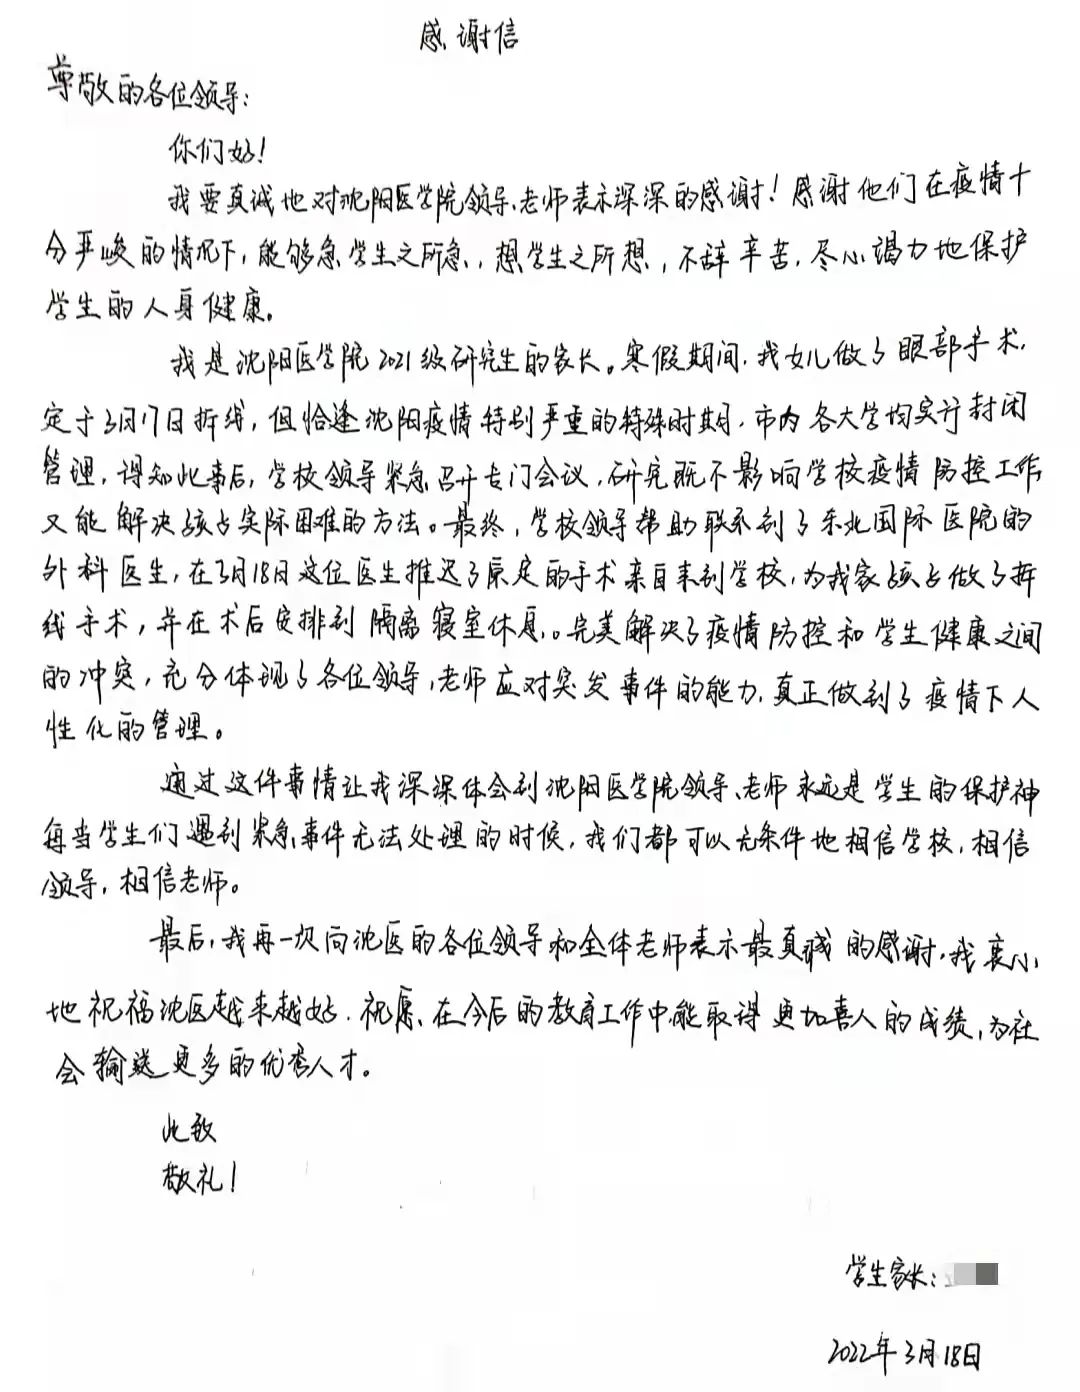 感谢信
尊敬的各位领导:
你们好!
我要真诚地对沈阳医学院领导、老师表示深深的感谢!感谢他们在疫情十
分严峻的情况下,能够急学生之所急,想学生之所想,不辞辛苦,尽心竭力地保护
学生的人身健康。
我是沈阳医学院2021级研究生的家长。寒假期间,我女儿做了眼部手术,
定于3月17日拆线,但恰逢沈阳疫情特别严重的特殊时期,市内各大学均实行封闭
管理,得知此事后,学校领导紧急召开专门会议,研究既不影响学校疫情防控工作
又能解决孩子实际困难的方法。最终,学校领导帮助联系到了东北国际医院的
外科医生,在3月18日这位医生推迟了原定的手术亲自来到学校,为我家孩子做了拆
线手术,并在术后安排到隔离寝室休息。完美解决了疫情防控和学生健康之间
的冲突,充分体现了各位领导,老师应对突发事件的能力,真正做到了疫情下人
性化的管理。
通过这件事情让我深深体会到沈阳医学院领导、老师永远是学生的保护神
每当学生们遇到紧急事件无法处理的时候,我们都可以无条件地相信学校,相信
领导,相信老师。
最后,我再一次向沈医的各位领导和全体老师表示最真诚的感谢,我衷心
地祝福沈医越来越好,祝愿在今后的教育工作中能取得更加喜人的成绩,为社
会输送更多的优秀人才。
此致
敬礼!
学生家长:
2022年3月18日